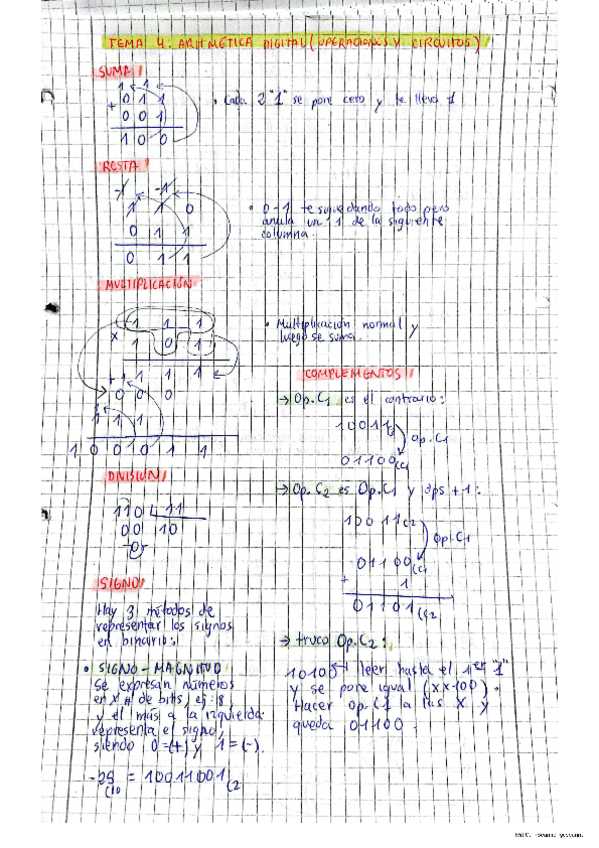 TEMA 4: ARITMÉTICA DIGITAL (OPERACIONES Y CIRCUITOS)
SUMA
1 1
0 1 1
+ 0 0 1
1 0 0
• Cada 2 "1" se pone cero y te lleva 1
RESTA
-1 -1
1 1 0
0 1 1
0 1 1
• 0-1 te sigue dando todo pero
anula un 1 de la siguiente
columna.
MULTIPLICACIÓN
1 1 1
x 1 0 1
+ 1 1 1 1
0 0 0
1 1 1
1 0 0 0 1 1
• Multiplicación normal y
luego se suma.
DIVISIÓN
110 11
00 10
0
SIGNO
Hay 3 métodos de
representar los signos
en binario:
• SIGNO-MAGNITUD
Se expresan números
en x nº de bits, ej: 8,
y el más a la izquierda
representa el signo,
siendo 0=(+) y 1=(-).
-25(10 = 10011001(2
COMPLEMENTOS
→ Op.C1 es el contrario:
10011
Op.C1
01100(C1
→ Op.C2 es Op.C1 y dps +1:
10011(2
Op.C1
01100(C1
+ 1
01101(C2
→ truco Op.C2:
10100 leer hasta el 1er "1"
y se pone igual (xx100).
Hacer Op.C1 a las x y
queda 01100.